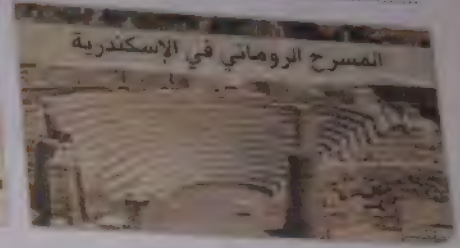 المسرح الروماني في الإسكندرية